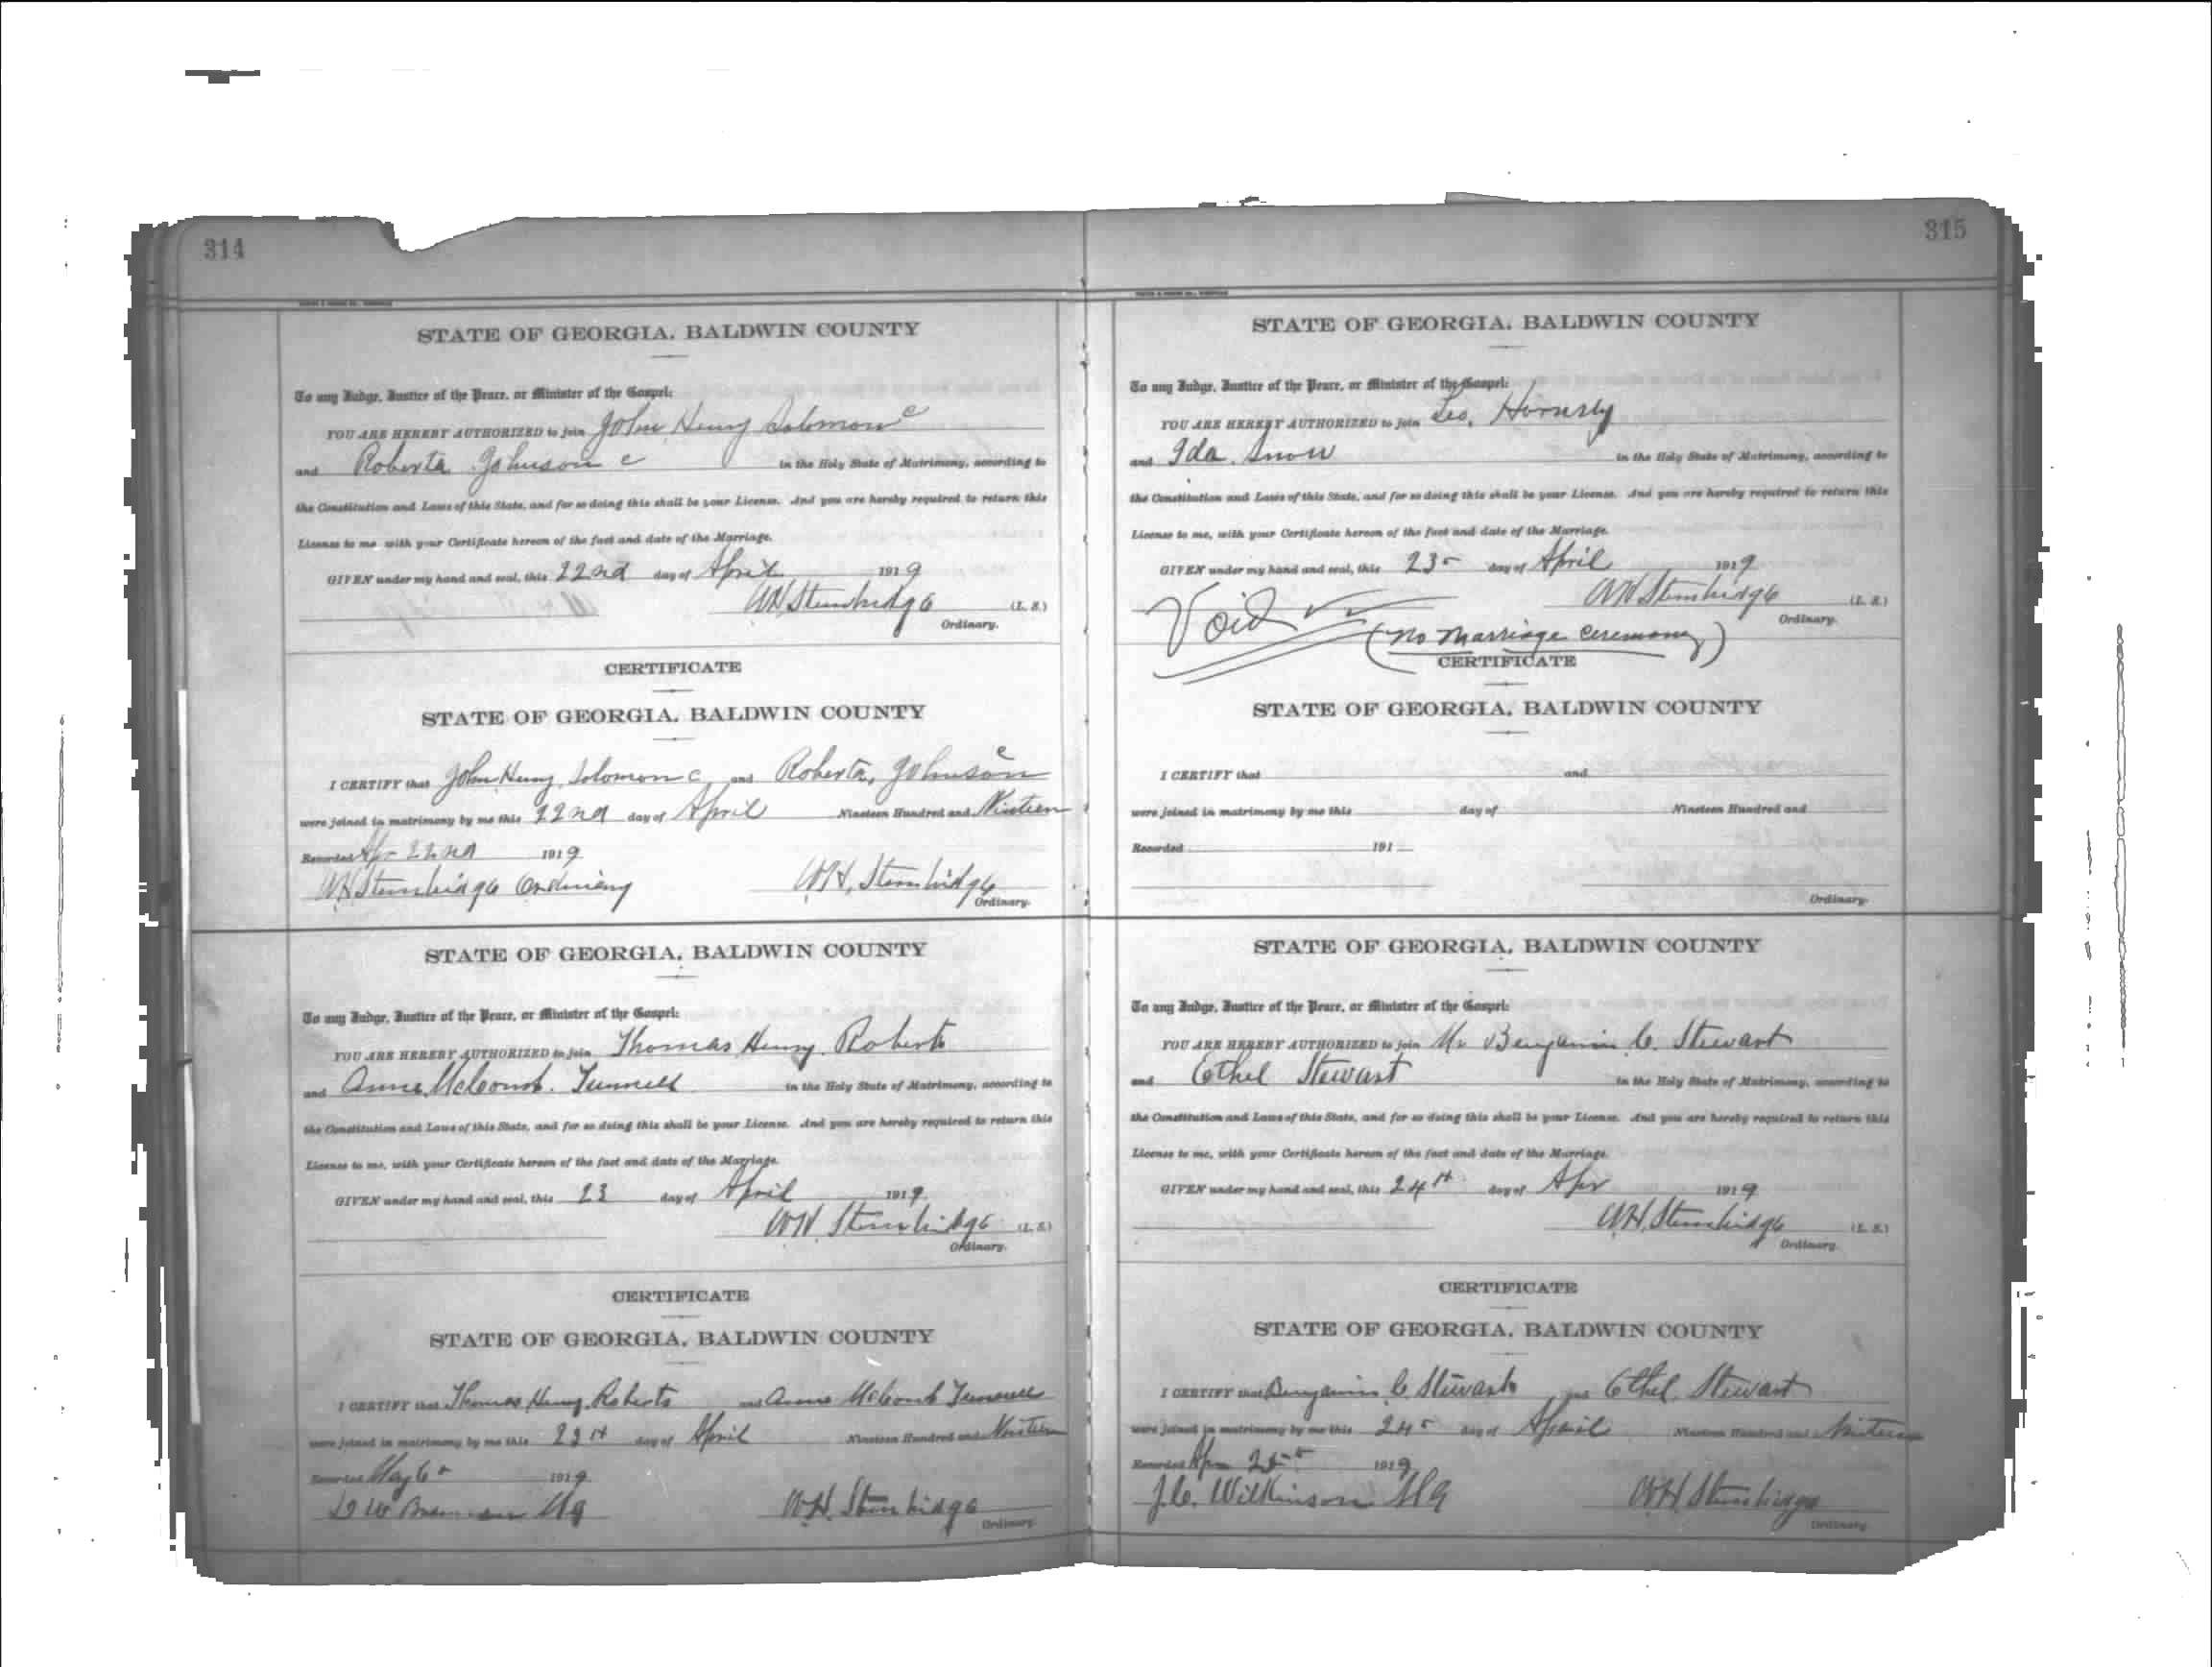 314
STATE OF GEORGIA, BALDWIN COUNTY
To any Judge, Justice of the Peace, or Minister of the Gospel:
YOU ARE HEREBY AUTHORIZED to join John Henry Solomon c
and Roberta Johnson c in the Holy State of Matrimony, according to
the Constitution and Laws of this State, and for so doing this shall be your License. And you are hereby required to return this
License to me with your Certificate hereon of the fact and date of the Marriage.
GIVEN under my hand and seal, this 22nd day of April 1919
WH Stembridge (L. S.)
Ordinary.
CERTIFICATE
STATE OF GEORGIA, BALDWIN COUNTY
I CERTIFY that John Henry Solomon c and Roberta Johnson c
were joined in matrimony by me this 22nd day of April Nineteen Hundred and Ninteen
Recorded Apr 22nd 1919
WH Stembridge Ordinary W.H. Stembridge
Ordinary.
STATE OF GEORGIA, BALDWIN COUNTY
To any Judge, Justice of the Peace, or Minister of the Gospel:
YOU ARE HEREBY AUTHORIZED to join Thomas Henry Roberts
and Anne McComb in the Holy State of Matrimony, according to
the Constitution and Laws of this State, and for so doing this shall be your License. And you are hereby required to return this
License to me, with your Certificate hereon of the fact and date of the Marriage.
GIVEN under my hand and seal, this 23 day of April 1919
WH Stembridge (L. S.)
Ordinary.
CERTIFICATE
STATE OF GEORGIA, BALDWIN COUNTY
I CERTIFY that Thomas Henry Roberts and Anne McComb
were joined in matrimony by me this day of April Nineteen Hundred and Ninteen
Recorded May 6 1919
MG W.H. Stembridge
Ordinary.
315
STATE OF GEORGIA, BALDWIN COUNTY
To any Judge, Justice of the Peace, or Minister of the Gospel:
YOU ARE HEREBY AUTHORIZED to join Hornsby
and Ida Snow in the Holy State of Matrimony, according to
the Constitution and Laws of this State, and for so doing this shall be your License. And you are hereby required to return this
License to me, with your Certificate hereon of the fact and date of the Marriage.
GIVEN under my hand and seal, this 23 day of April 1919
WH Stembridge (L. S.)
Ordinary.
Void (No Marriage Ceremony)
CERTIFICATE
STATE OF GEORGIA, BALDWIN COUNTY
I CERTIFY that and
were joined in matrimony by me this day of Nineteen Hundred and
Recorded 191
Ordinary.
STATE OF GEORGIA, BALDWIN COUNTY
To any Judge, Justice of the Peace, or Minister of the Gospel:
YOU ARE HEREBY AUTHORIZED to join Mr Benjamin C. Stewart
and Ethel Stewart in the Holy State of Matrimony, according to
the Constitution and Laws of this State, and for so doing this shall be your License. And you are hereby required to return this
License to me, with your Certificate hereon of the fact and date of the Marriage.
GIVEN under my hand and seal, this 24th day of Apr 1919
W.H. Stembridge (L. S.)
Ordinary.
CERTIFICATE
STATE OF GEORGIA, BALDWIN COUNTY
I CERTIFY that Benjamin C. Stewart and Ethel Stewart
were joined in matrimony by me this 24 day of April Nineteen Hundred and Ninteen
Recorded Apr 1919
J.C. Wilkinson MG WH Stembridge
Ordinary.